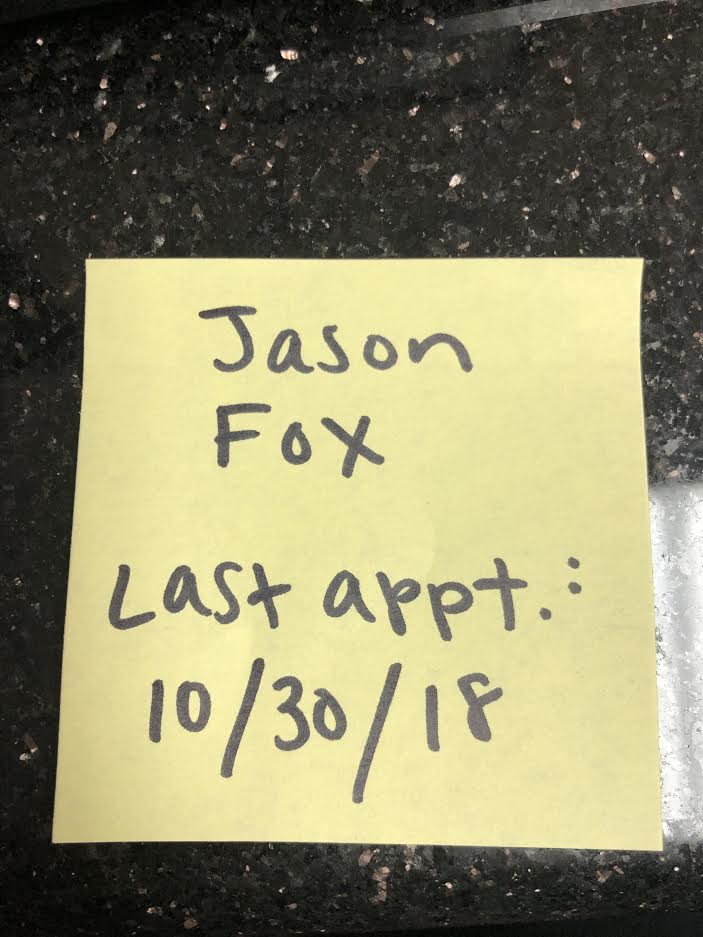 Jason
Fox
Last appt.:
10/30/18